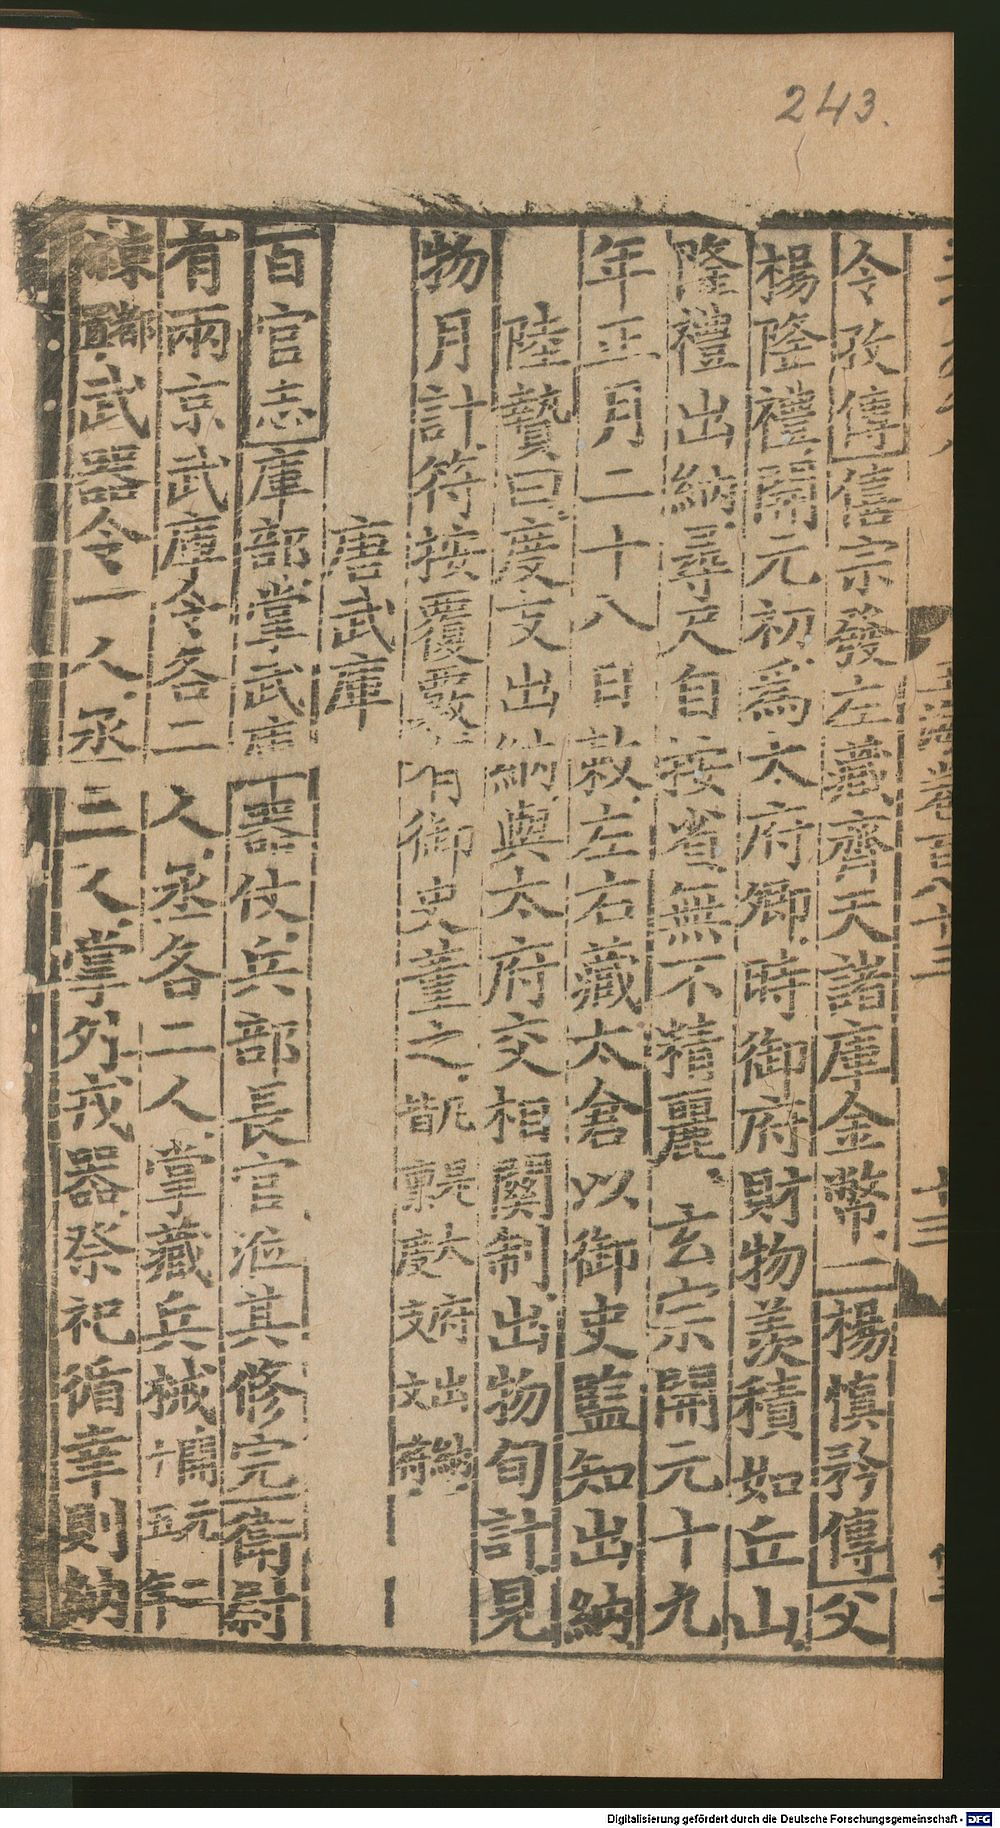 243.
令孜傳僖宗發左藏齊天諸庫金幣二楊慎矜傳父
楊隆禮開元初爲太府卿時御府財物羨積如丘山
隆禮出納尋尺自按省無不精麗玄宗開元十九
年正月二十八日敕左右藏太倉以御史監知出納
陸贄曰度支出納與太府交相關制出物旬計見
物月計符按覆覈有御史董之
唐武庫
百官志庫部掌武庫器仗兵部長官涖其修完衛尉
有兩京武庫令各二人丞各二人掌藏兵械開元二
武器令一人丞二人掌外戎器祭祀循幸則納
玉海卷百八十三
十三
Digitalisierung gefördert durch die Deutsche Forschungsgemeinschaft - DFG